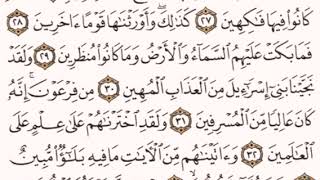 كَانُوا۟ فِيهَا فَـٰكِهِينَ ٢٧ كَذَٰلِكَ ۖ وَأَوْرَثْنَـٰهَا قَوْمًا ءَاخَرِينَ ٢٨
فَمَا بَكَتْ عَلَيْهِمُ ٱلسَّمَآءُ وَٱلْأَرْضُ وَمَا كَانُوا۟ مُنظَرِينَ ٢٩ وَلَقَدْ
نَجَّيْنَا بَنِىٓ إِسْرَٰٓءِيلَ مِنَ ٱلْعَذَابِ ٱلْمُهِينِ ٣٠ مِن فِرْعَوْنَ ۚ إِنَّهُۥ
كَانَ عَالِيًا مِّنَ ٱلْمُسْرِفِينَ ٣١ وَلَقَدِ ٱخْتَرْنَـٰهُمْ عَلَىٰ عِلْمٍ عَلَى
ٱلْعَـٰلَمِينَ ٣٢ وَءَاتَيْنَـٰهُم مِّنَ ٱلْـَٔايَـٰتِ مَا فِيهِ بَلَـٰٓؤٌا۟ مُّبِينٌ